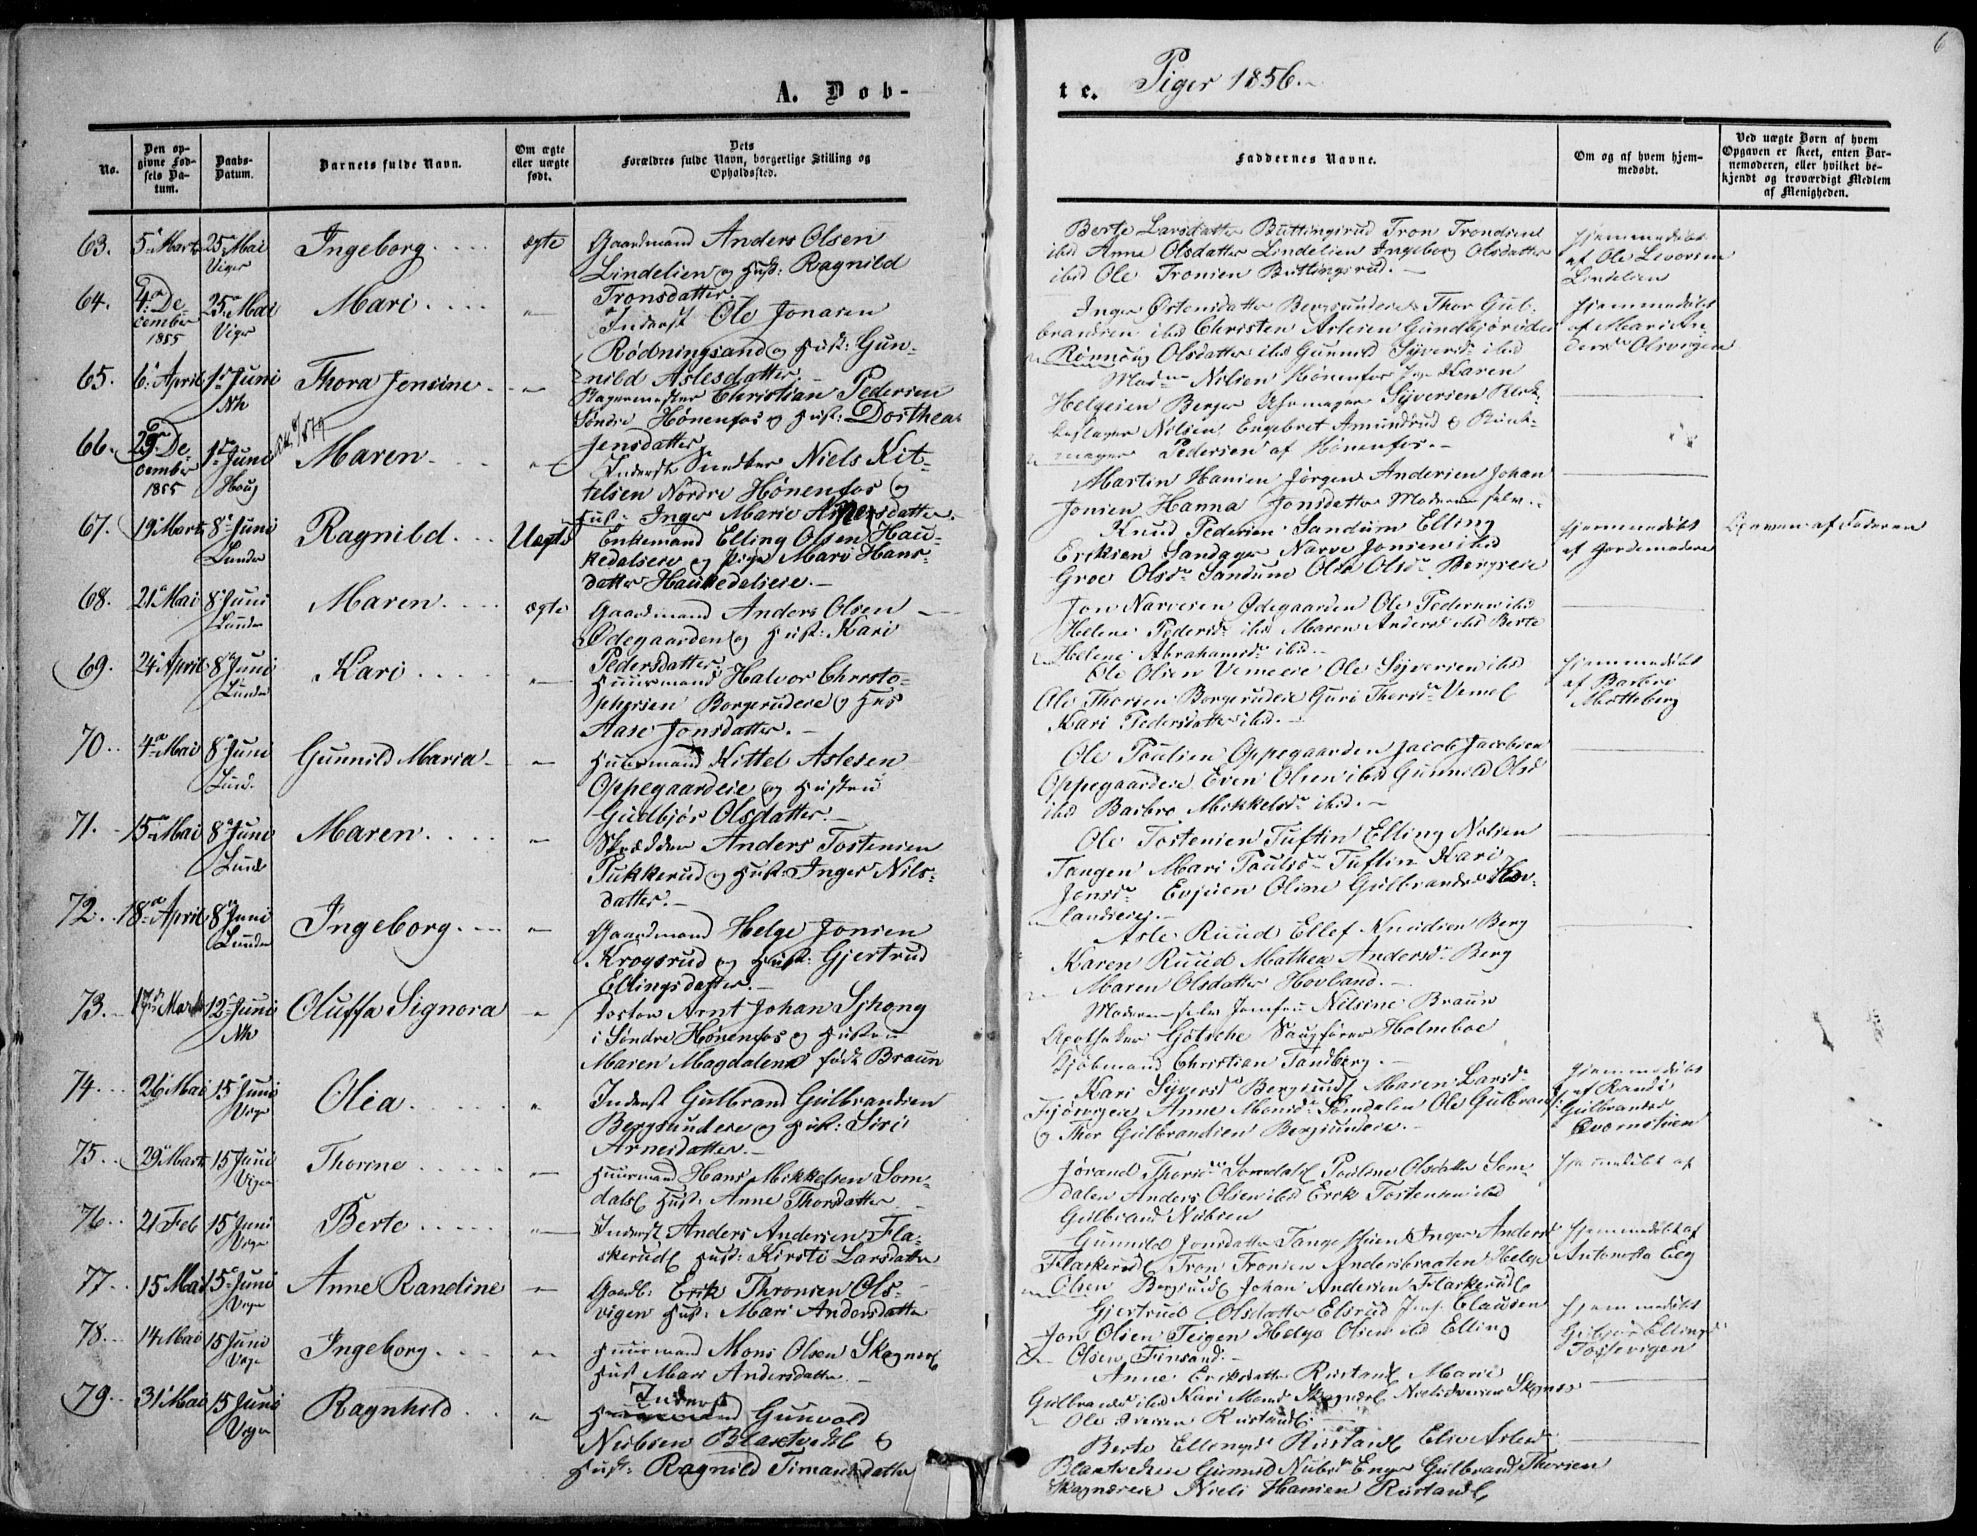 6
A. Døb-
te.
Piger 1856.
No.
Den op-
givne Fød-
sels Da-
tum.
Daabs-
Datum.
Barnets fulde Navn.
Om ægte
eller uægte
født.
Dets
Forældres fulde Navn, borgerlige Stilling og
Opholdssted.
Faddernes Navne.
Om og af hvem hjem-
medøbt.
Ved uægte Børn af hvem
Opgaven er skeet, enten Bar-
nemoderen, eller hvilket be-
kjendt og troværdigt Medlem
af Menigheden.
63. 5 Marts 25 Mai Ingeborg ægte Gaardmand Anders Olsen
Viger Lindelien og Hust: Ragnild
Tronsdatter.
Berte Larsdatter Buttingsrud Tron Trondsen
ibid Anne Olsdatter Lindelien Ingeborg Olsdatter
ibid Ole Tronsen Buttingsrud.
Hjemmedøbt
af Ole Levorsen
Lindelien
64. 4 De-
cember
1855 25 Mai
Viger Mari " Inderst Ole Jonasen
Rødningsand og Hust: Gun-
nild Aslesdatter.
Inger Østensdatter Bergsundeie Thor Gul-
brandsen ibid Christen Aslesen
Olsdatter ibid Gunnild Syversd ibid
Hjemmedøbt
af Mari An-
dersd Olsvigen
65. 6 April 1 Juni Thora Jensine " Bagermester Christian Pedersen
Nh Søndre Hønenfos og Hust: Dorthea
Jensdatter
Nilsen Hønenfos Karen
Helgesen Berger Syversen
Nilsen Engebret Amundrud &
Pedersen af Hønenfos.
66. 29 De-
cember
1855 1 Juni
Houg Maren " Inderst Niels Kit-
telsen Nordre Hønenfos og
Hust: Inger Marie
Martin Hansen Jørgen Andersen Johan
Jonsen Hanna Jonsdatter Moderen selv.
67. 19 Marts 8 Juni Ragnild Uægte Enkemand Elling Olsen Hau-
Lunder kedalseie og Pige Mari Hans-
datter Haukedalseie.
Knud Pedersen Sandum Elling
Eriksen Narve Jonsen ibid
Groe Olsd Sandum Olia Olsd Bergseie
Hjemmedøbt
af Jordemoderen
Opgaven af Faderen
68. 21 Mai 8 Juni Maren ægte Gaardmand Anders Olsen
Lunder Ødegaarden og Hust: Kari
Pedersdatter.
Jon Narvesen Ødegaarden Ole Pedersen ibid
Helene Pedersd ibid Maren Andersd ibid Berte
Helene Abrahamsd ibid.
69. 24 April 8 Juni Kari " Huusmand Halvor Christo-
Lunder phersen Borgerudeie og Hus
Aase Jonsdatter.
Ole Olsen Vemeeie Ole Syversen ibid
Ole Thorsen Borgerudeie Guri Thorsd Veme
Kari Pedersdatter ibid.
Hjemmedøbt
af Barbro
Mutteberg
70. 4 Mai 8 Juni Gunnild Maria " Huusmand Kittel Aslesen
Lund. Oppegaardeie og Hustru
Gudbjør Olsdatter.
Ole Paulsen Oppegaarden Jacob Jacobsen
Oppegaardeie Even Olsen ibid Gunnild Olsd
ibid Barbro Mikkelsd ibid.
71. 15 Mai 8 Juni Maren " Skrædder Anders Tostensen
Lund Tukkerud og Hust: Inger Nils-
datter.
Ole Tostensen Tuftin Elling Nilsen
Tangen Mari Paulsd Tuftin Kari
Jonsd Evjuen Oline Gulbrandsd Hov-
landseie.
72. 18 April 8 Juni Ingeborg " Gaardmand Helge Jonsen
Lunder Krogsrud og Hust: Gjertrud
Ellingsdatter.
Asle Ruud Ellef Knudsen Berg
Karen Ruud Mathea Andersd Berg
Maren Olsdatter Hovland.
73. 17 Marts 12 Juni Oluffa Signora " Doctor Arnt Johan Schong
Nh i Søndre Hønenfos og Hustru
Maren Magdalena født Braun
Moderen selv Jomfru Nilsine Braun
Apotheker Götsche Sagfører Holmboe
Kjøbmand Christian Tandberg.
74. 26 Mai 15 Juni Olea " Inderst Gulbrand Gulbrandsen
Viger Bergsundeie og Hust: Siri
Arnesdatter.
Kari Syversd Bergsund Maren Larsd
Anne Monsd Somdalen Ole Gulbrands
og Thor Gulbrandsen Bergsundeie.
Hjemmedøbt
af Randi
Gulbrandsd
75. 29 Marts 15 Juni Thorine " Huusmand Hans Mikkelsen Som-
Viger dals Hust: Anne Thorsdatter
Jørand Thorsd Somdals Pauline Olsdatter Som-
dalen Anders Olsen ibid Erik Tostensen ibid
Gulbrand Nubsen
Hjemmedøbt af
76. 21 Feb 15 Juni Berte " Inderst Anders Andersen Fla-
Viger skerud Hust: Kirsti Larsdatter
Gunnild Jonsdatter Inger Anders
Flaskerud Tron Tronsen Andersbraaten Helge
Olsen Bergsund Johan Andersen Flaskerud
Hjemmedøbt af
Antonetta Eeg
77. 15 Mai 15 Juni Anne Randine " Gaardb: Erik Thronsen Ols-
Viger vigen Hust: Mari Andersdatter
Gjertrud Olsdatter Elsrud Clausen
Jon Olsen Teigen Helge Olsen ibid Elling
Olsen Finsand.
Hjemmedøbt
Ellingsd
Tostevigen
78. 14 Mai 15 Juni Ingeborg " Huusmand Mons Olsen Skagnæs
Viger Hust Mari Andersdatter
Anne Eriksdatter Rustand Marie
Gulbrandsd ibid Kari Monsd Skagnæs Niels Iversen Skagnæs
Ole Iversen Rustand.
79. 31 Mai 15 Juni Ragnhild " Inderst
Viger Gunvald
Nubsen &
Hust: Ragnild Simensdatter
Berte Ellingsd Rustand Elie Aslesd
Gunnild Nubsd Enger Gulbrand Thorsen
Skagnæseie Niels Hansen Rustand